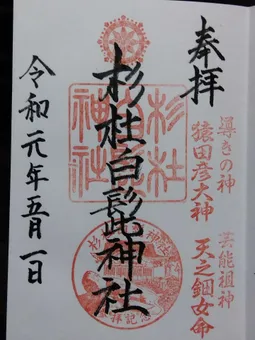 奉拝
導きの神
猿田彦大神
芸能祖神
天之鈿女命
杉杜白髭神社
杉杜
神社
令和元年五月一日